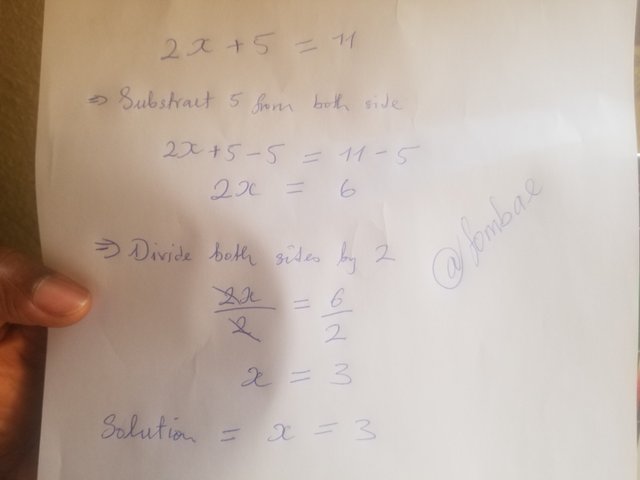 2x + 5 = 11
⇒ Substract 5 from both side
2x+5-5 = 11-5
2x = 6
⇒ Divide both sides by 2
2x/2 = 6/2
x = 3
Solution = x = 3
@fombae